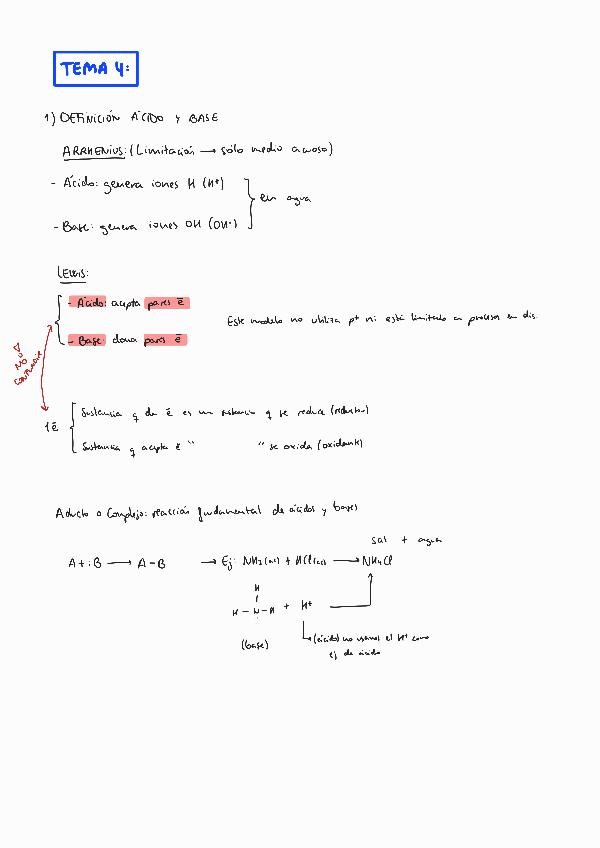 TEMA 4:
1) DEFINICIÓN ÁCIDO Y BASE
ARRHENIUS: (Limitación → sólo medio acuoso)
- Ácido: genera iones H (H⁺)
- Base: genera iones OH (OH⁻)
en agua
LEWIS:
- Ácido: acepta pares ē
- Base: dona pares ē
Este modelo no utiliza p⁺ ni está limitado a procesos en dis.
NO CONFUNDIR
1ē
Sustancia q da ē es un sustancia q se reduce (reductor)
Sustancia q acepta ē " " se oxida (oxidante)
Aducto o Complejo: reacción fundamental de ácidos y bases
sal + agua
A + :B → A-B → Ej: NH₃(ac) + HCl(ac) → NH₄Cl
H
H - N - H + H⁺
(base)
(ácido) no usamos el H⁺ como
ej de ácido